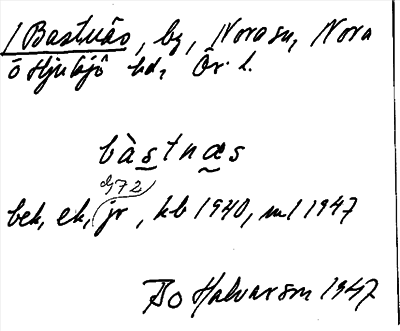 / Bastnäs, by, Nora sn, Nora
o Hjulsjö bd, Ör. l.
bàstnæs
dj 72
bek, ek, jr, kb 1940, ml 1947
Bo Halvarson 1947